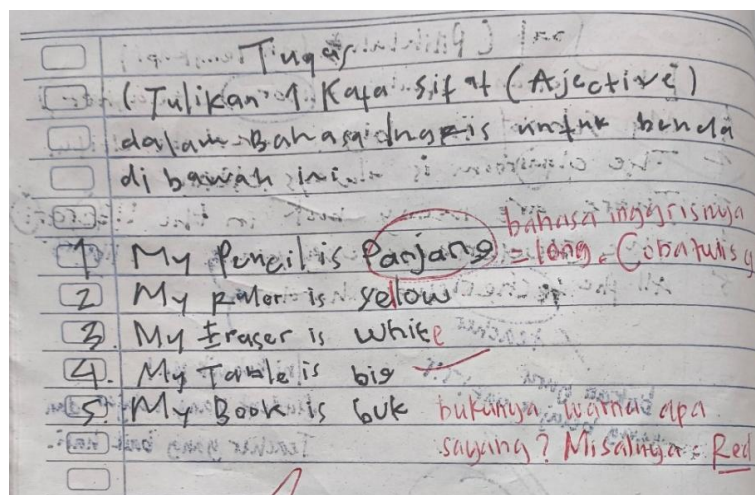 Tugas
(Tulikan 1 Kata sifat (Ajective)
dalam Bahasa ingris untuk benda
di bawah ini
1 My Pencil is Panjang = long. Coba tulis y
bahasa inggrisnya
2 My ruler is yellow
3. My Eraser is white
4. My Table is big
5. My Book is buk bukunya warna apa
sayang? Misalnya = Red